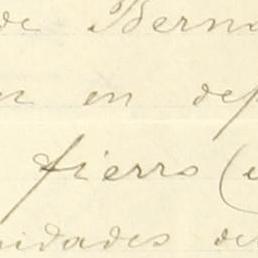 de Berna
en dep
fierro (
idades de